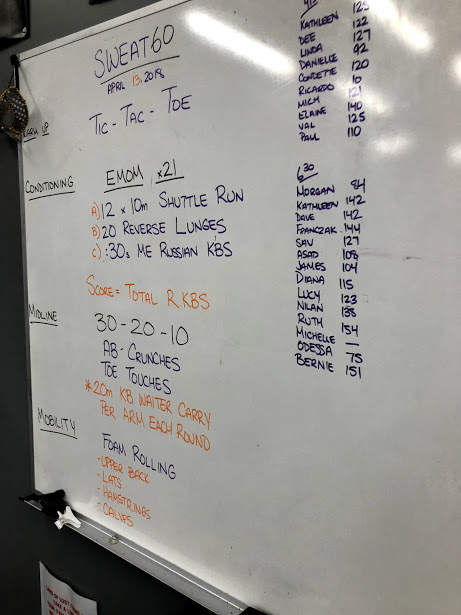 SWEAT60
APRIL 13, 2018
TIC-TAC-TOE
WARM UP
CONDITIONING
EMOM x21
A) 12 x 10m SHUTTLE RUN
B) 20 REVERSE LUNGES
C) :30s ME RUSSIAN KBS
SCORE = TOTAL R KBS
MIDLINE
30-20-10
AB-CRUNCHES
TOE TOUCHES
*20m KB WAITER CARRY
PER ARM EACH ROUND
MOBILITY
FOAM ROLLING
-UPPER BACK
-LATS
-HAMSTRINGS
-CALVES
KATHLEEN 122
DEE 127
LINDA 92
DANIELLE 120
CONDETTE 10
RICARDO 121
MICH 140
ELAINE 125
VAL 110
PAUL
6 30
MORGAN 84
KATHLEEN 142
DAVE 142
FRANCZAK 144
SAV 127
ASAD 108
JAMES 104
DIANA 115
LUCY 123
NILAN 138
RUTH 154
MICHELLE —
ODESSA 75
BERNIE 151